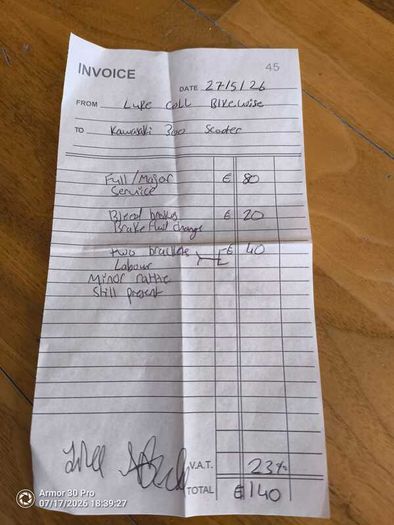 INVOICE
45
DATE 27/5/26
FROM Luke Coll Bikewise
TO Kawasaki 300 Scooter
Full/Major € 80
Service
Bleed brakes € 20
Brake fluid change
two brackets € 40
Labour
Minor rattle
Still present
V.A.T. 23%
TOTAL €140
Armor 30 Pro
07/17/2026 18:39:27